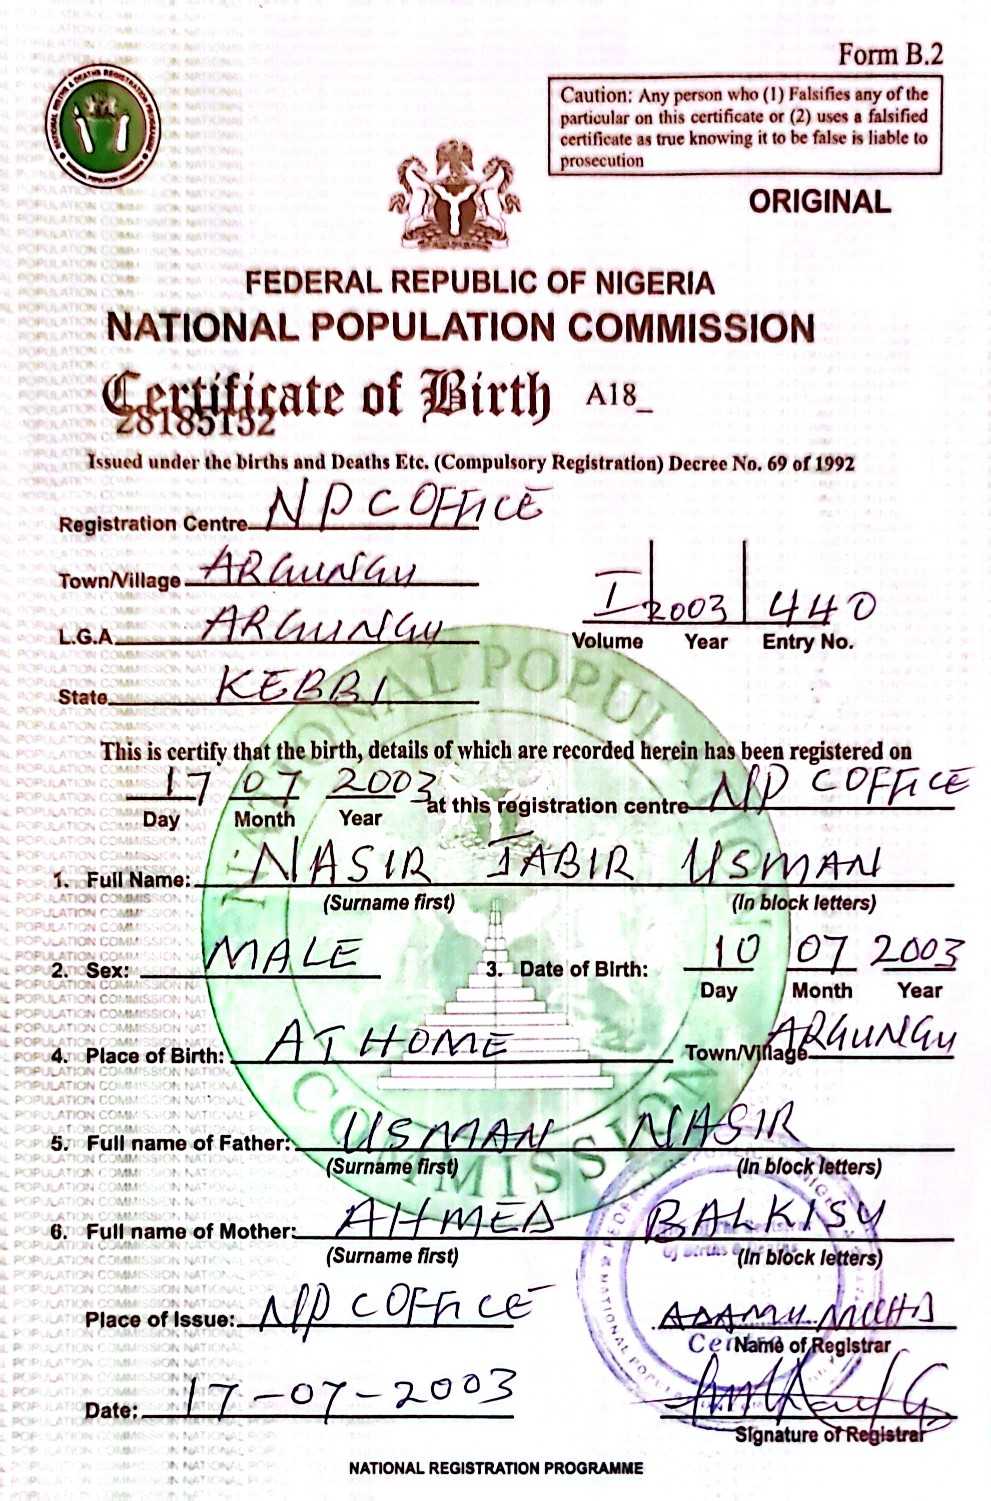 Form B.2
Caution: Any person who (1) Falsifies any of the
particular on this certificate or (2) uses a falsified
certificate as true knowing it to be false is liable to
prosecution
ORIGINAL
NATIONAL BIRTHS & DEATHS REGISTRATION PROGRAMME
NATIONAL POPULATION COMMISSION
FEDERAL REPUBLIC OF NIGERIA
NATIONAL POPULATION COMMISSION
Certificate of Birth A18_
28185152
Issued under the births and Deaths Etc. (Compulsory Registration) Decree No. 69 of 1992
Registration Centre NPC OFFICE
Town/Village ARGUNGU
L.G.A ARGUNGU
I 2003 440
Volume Year Entry No.
State KEBBI
This is certify that the birth, details of which are recorded herein has been registered on
17 07 2003 at this registration centre NPC OFFICE
Day Month Year
1. Full Name: NASIR JABIR USMAN
(Surname first) (In block letters)
2. Sex: MALE 3. Date of Birth: 10 07 2003
Day Month Year
4. Place of Birth: AT HOME Town/Village ARGUNGU
5. Full name of Father: USMAN NASIR
(Surname first) (In block letters)
6. Full name of Mother: AHMED BALKISU
(Surname first) (In block letters)
Place of Issue: NPC OFFICE ADAMU MUHD
Name of Registrar
Date: 17-07-2003
Signature of Registrar
NATIONAL REGISTRATION PROGRAMME
NATIONAL POPULATION COMMISSION